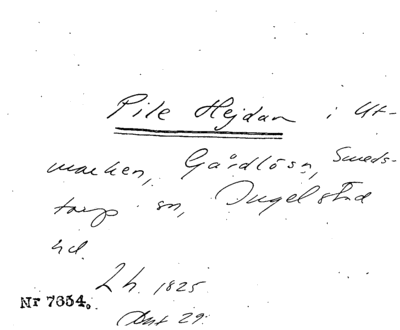 Pile Hejdan i Ut-
marken, Gårdlösn, Smeds-
torp sn, Ingelstad
hd.
2 h. 1825
Akt 29.
Nr 7654.